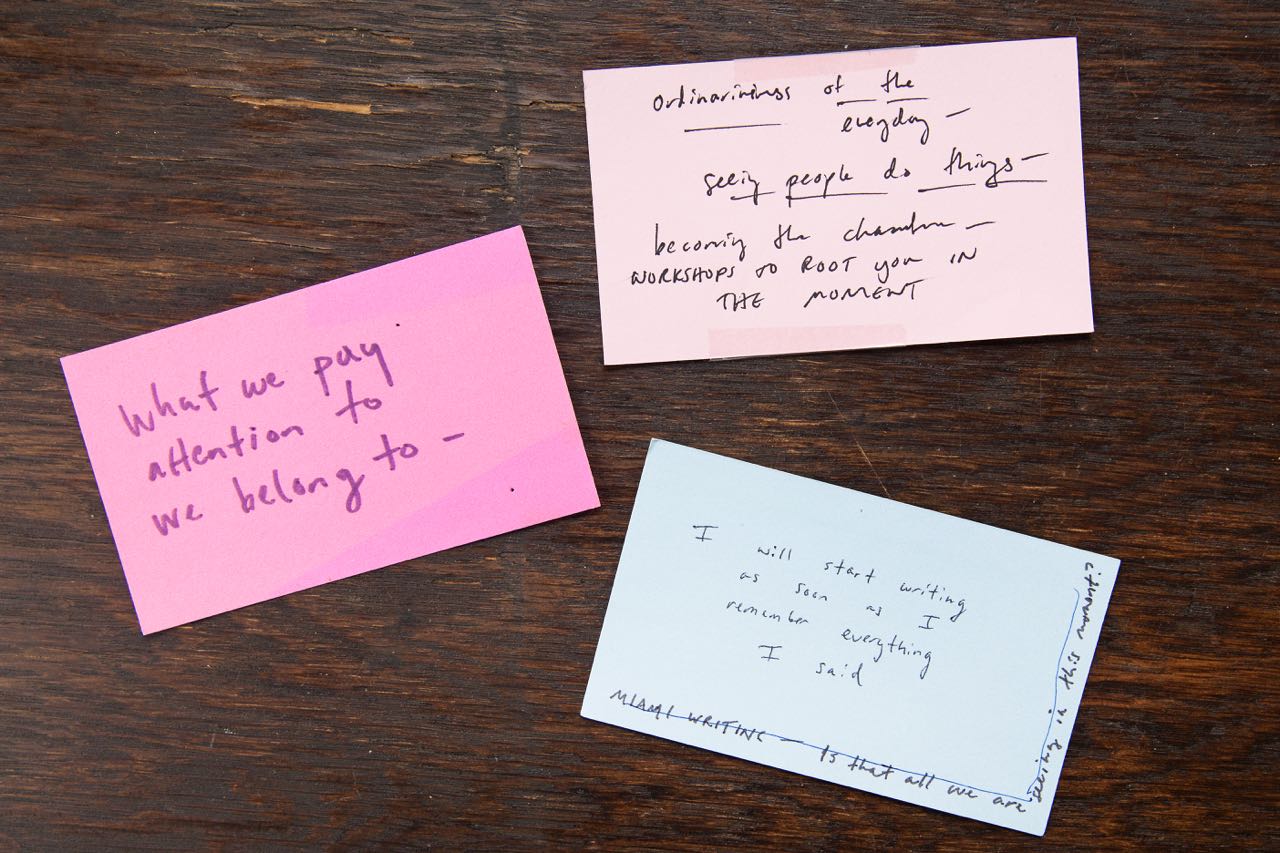 What we pay
attention to
we belong to –
ordinarininess of the
everyday –
seeing people do things –
becoming the –
WORKSHOPS TO ROOT you IN
THE MOMENT
I will start writing
as soon as I
remember everything
I said
MIAMI WRITING – Is that all we are
seeing in this moment?